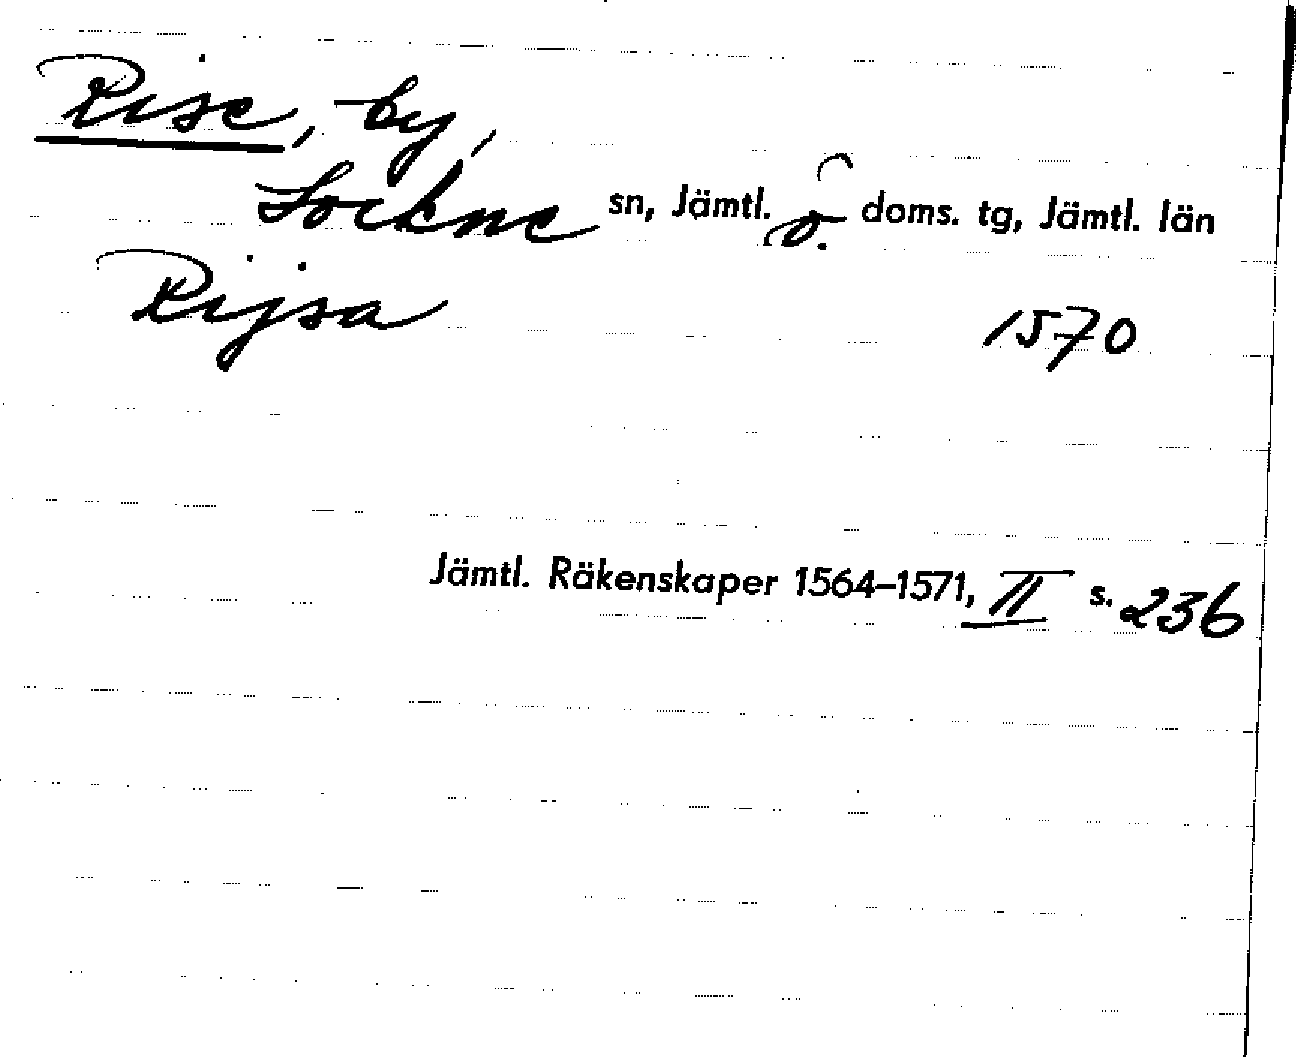 Rise, by,
Lockne sn, Jämtl. ö. doms. tg, Jämtl. län
Rijsa 1570
Jämtl. Räkenskaper 1564–1571, II s. 236